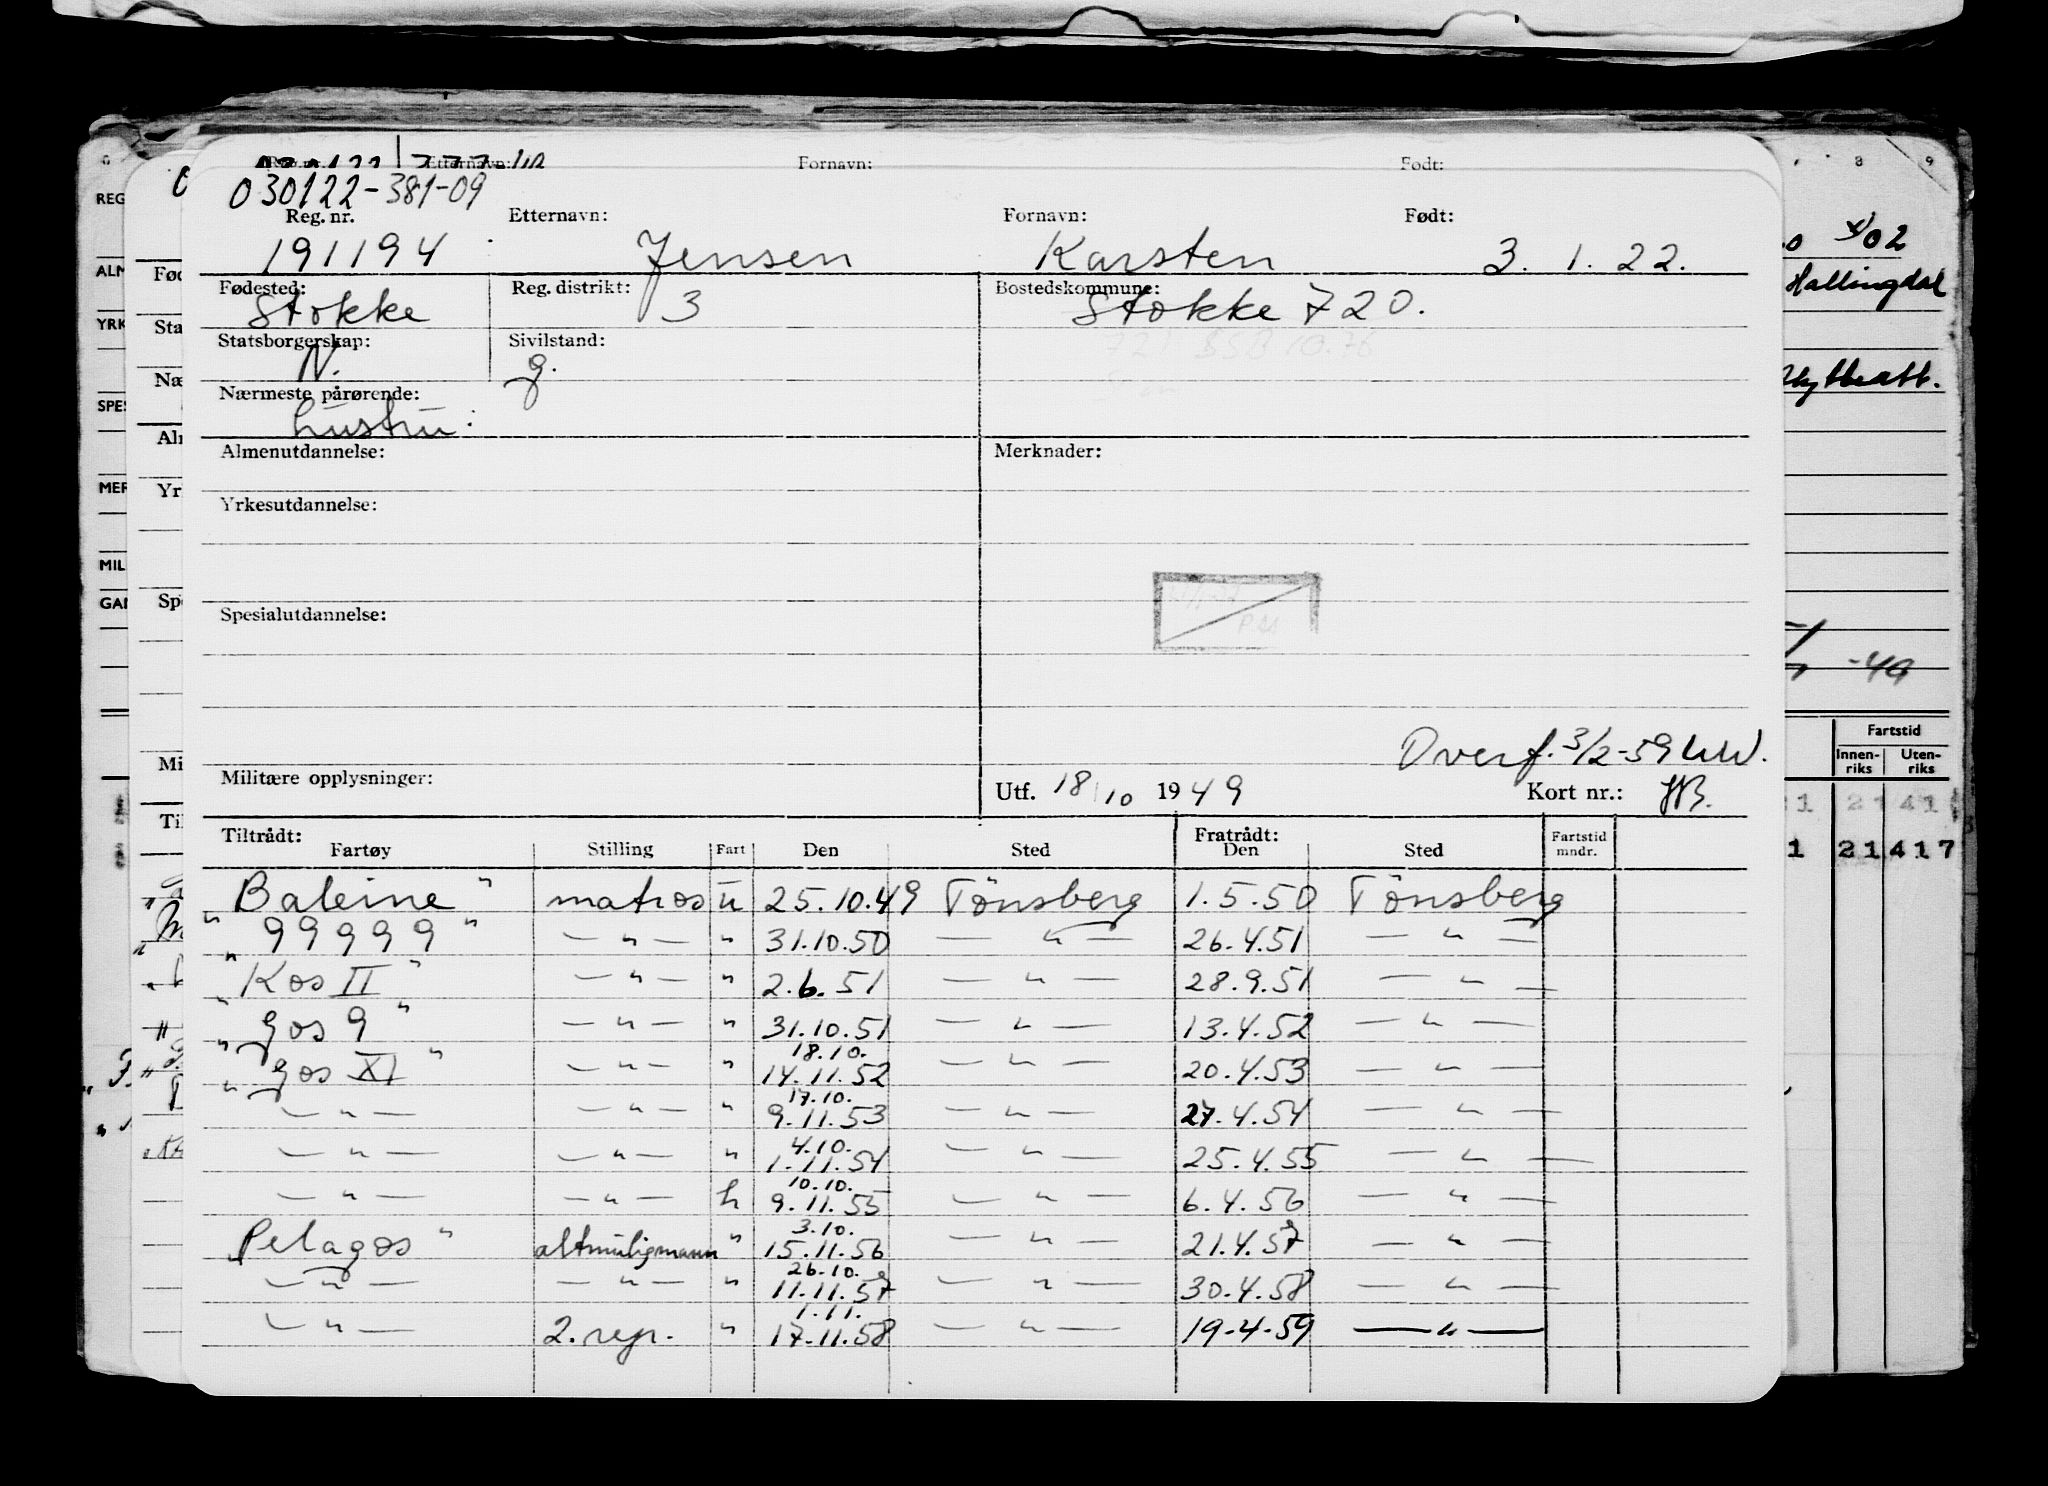 Fornavn: Født:
030122-381-09
Reg. nr. Etternavn: Fornavn: Født:
191194 Jensen Karsten 3. 1. 22.
Fødested: Reg. distrikt: Bostedskommune:
Stokke 3 Stokke 720.
Statsborgerskap: Sivilstand:
N. g.
Nærmeste pårørende:
hustru:
Almenutdannelse: Merknader:
Yrkesutdannelse:
Spesialutdannelse:
Overf. 3/2-59
Militære opplysninger: Utf. 18/10 1949 Kort nr.: HB.
Tiltrådt: Fratrådt:
Fartøy Stilling Fart Den Sted Den Sted Fartstid mndr.
"Baleine" matros u 25.10.49 Tönsberg 1.5.50 Tönsberg
"99999" — " — " 31.10.50 — " — 26.4.51 — " —
"Kos II" — " — " 2.6.51 — " — 28.9.51 — " —
"Gos 9" — " — " 31.10.51 — " — 13.4.52 — " —
18.10.
"Gos XI" — " — " 14.11.52 — " — 20.4.53 — " —
17.10.
— " — — " — " 9.11.53 — " — 27.4.54 — " —
4.10.
— " — — " — " 1.11.54 — " — 25.4.55 — " —
10.10.
— " — — " — h 9.11.55 — " — 6.4.56 — " —
3.10.
Pelagos" altmuligmann " 15.11.56 — " — 21.4.57 — " —
26.10.
— " — — " — " 11.11.57 — " — 30.4.58 — " —
1.11.
— " — 2. repr. " 17.11.58 — " — 19-4-59 — " —
8 9
02
Hallingdal
-49
Fartstid
Innen-riks Uten-riks
21 41
1 21 417